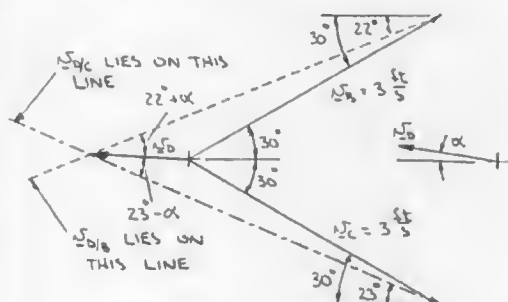 30°
22°
v_D/C LIES ON THIS
LINE
22°+α
v_B = 3 ft/s
v_D
30°
30°
v_D
α
23°-α
v_D/B LIES ON
THIS LINE
v_C = 3 ft/s
30°
23°